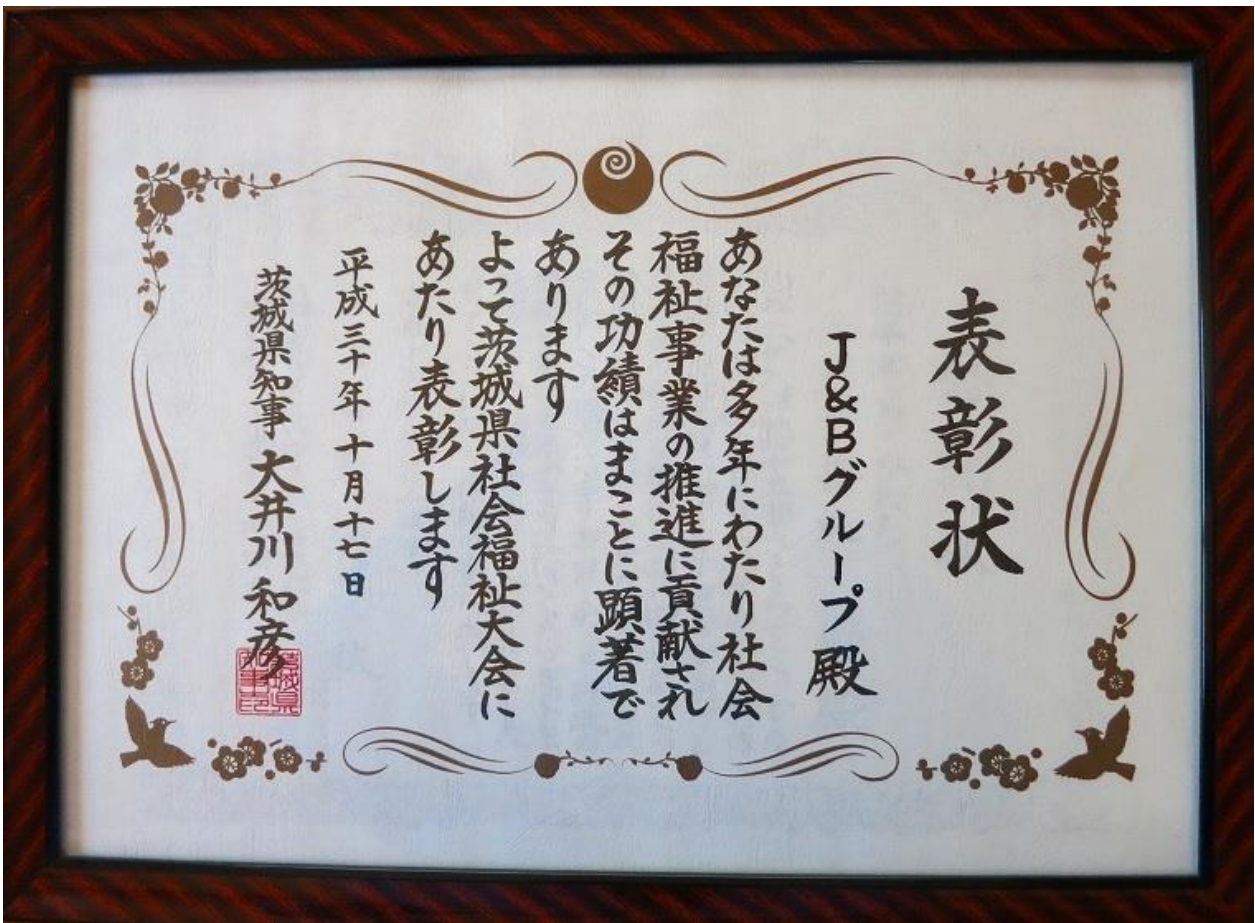 表彰状
J&Bグループ殿
あなたは多年にわたり社会
福祉事業の推進に貢献され
その功績はまことに顕著で
あります
よって茨城県社会福祉大会に
あたり表彰します
平成三十年十月十七日
茨城県知事 大井川和彦
茨城県知事印